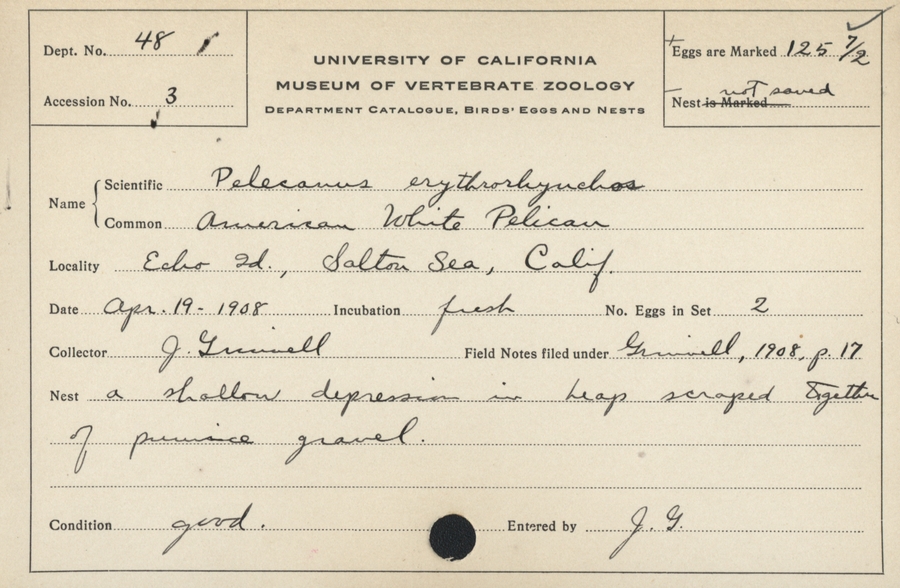 Dept. No. 48
Accession No. 3
UNIVERSITY OF CALIFORNIA
MUSEUM OF VERTEBRATE ZOOLOGY
DEPARTMENT CATALOGUE, BIRDS' EGGS AND NESTS
Eggs are Marked 125 7/2
Nest is Marked not saved
Name
Scientific Pelecanus erythrorhynchos
Common American White Pelican
Locality Echo Id., Salton Sea, Calif.
Date Apr. 19 - 1908 Incubation fresh No. Eggs in Set 2
Collector J. Grinnell Field Notes filed under Grinnell, 1908, p. 17
Nest a shallow depression in heap scraped together
of pumice gravel.
Condition good. Entered by J. G.